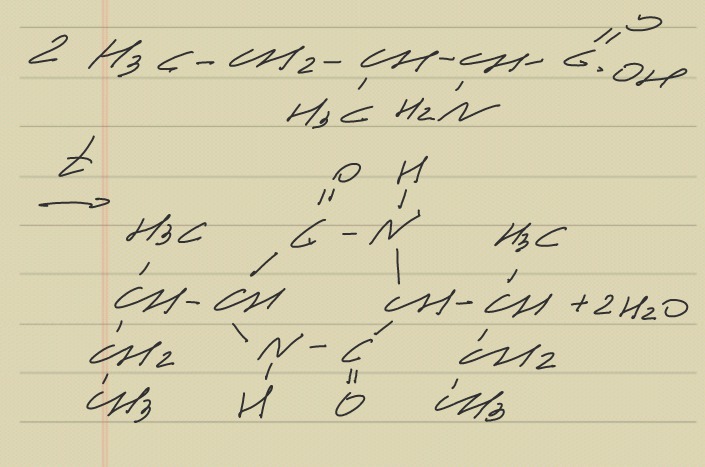 2 H3C-CH2-CH-CH-C=O
OH
H3C H2N
t
→
O H
H3C C-N H3C
CH-CH CH-CH+2H2O
CH2 N-C CH2
CH3 H O CH3